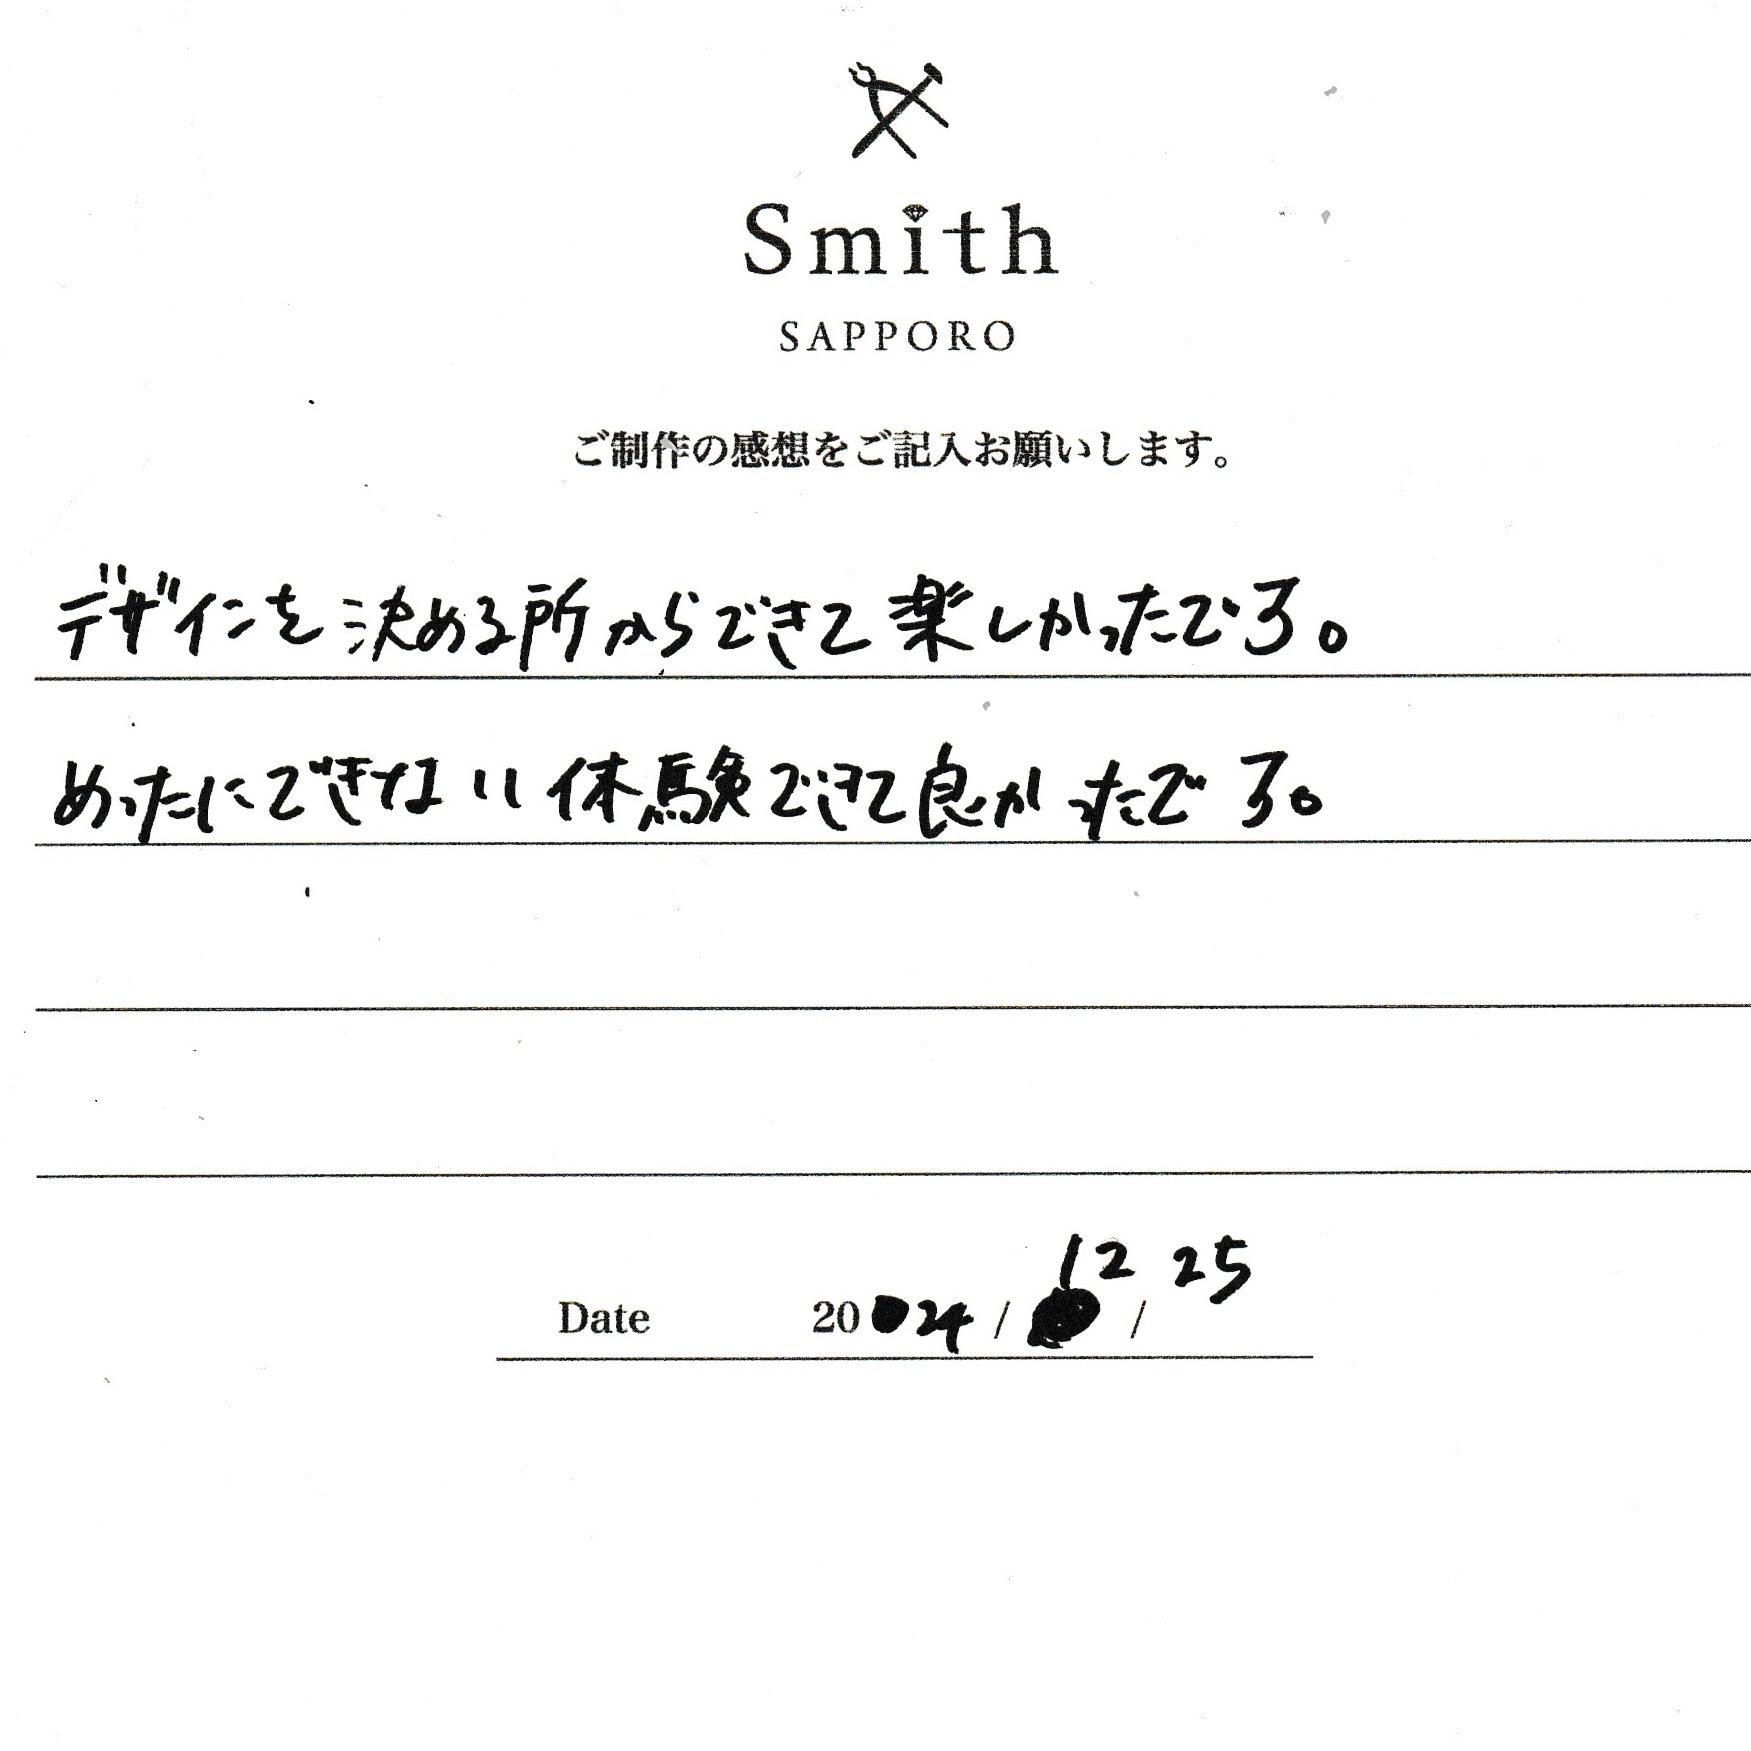 Smith
SAPPORO
ご制作の感想をご記入お願いします。
デザインを決める所からできて楽しかったです。
めったにできない体験できて良かったです。
12 25
Date 20 24 / /